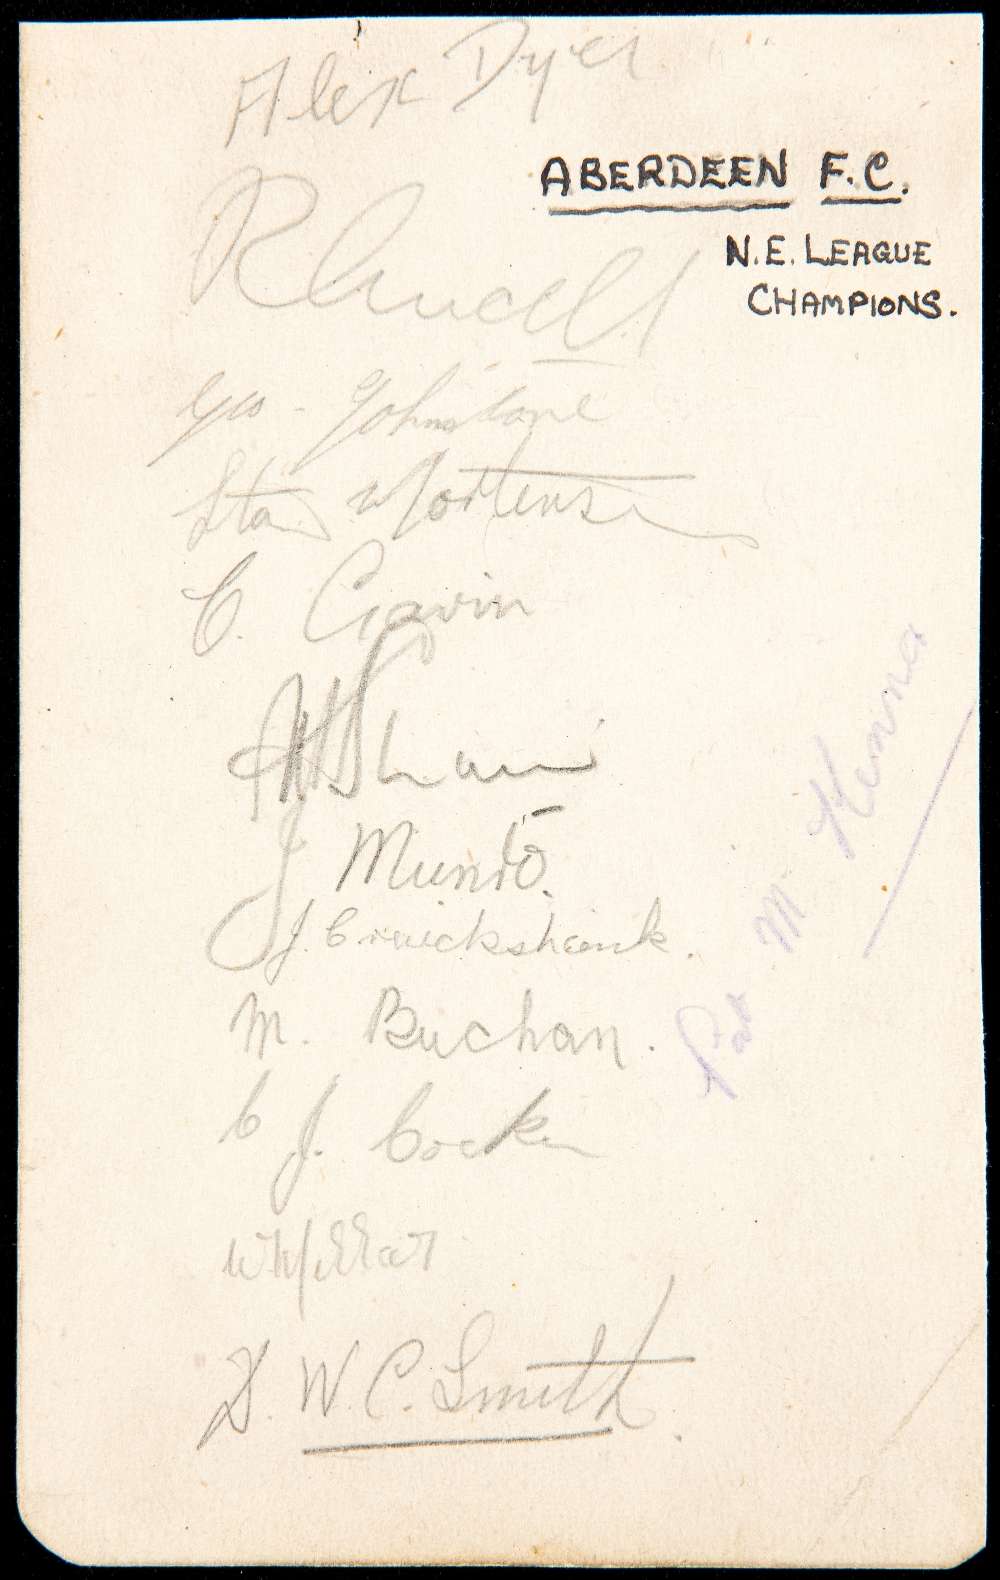 Alex Dyer
ABERDEEN F.C.
N.E. LEAGUE
CHAMPIONS.
Geo. Johnstone
Stan Mortensen
C. Gavin
J Munro.
J. Cruickshank.
M. Buchan.
C J. Cocker
D. W. C. Smith.
Pat McKenna